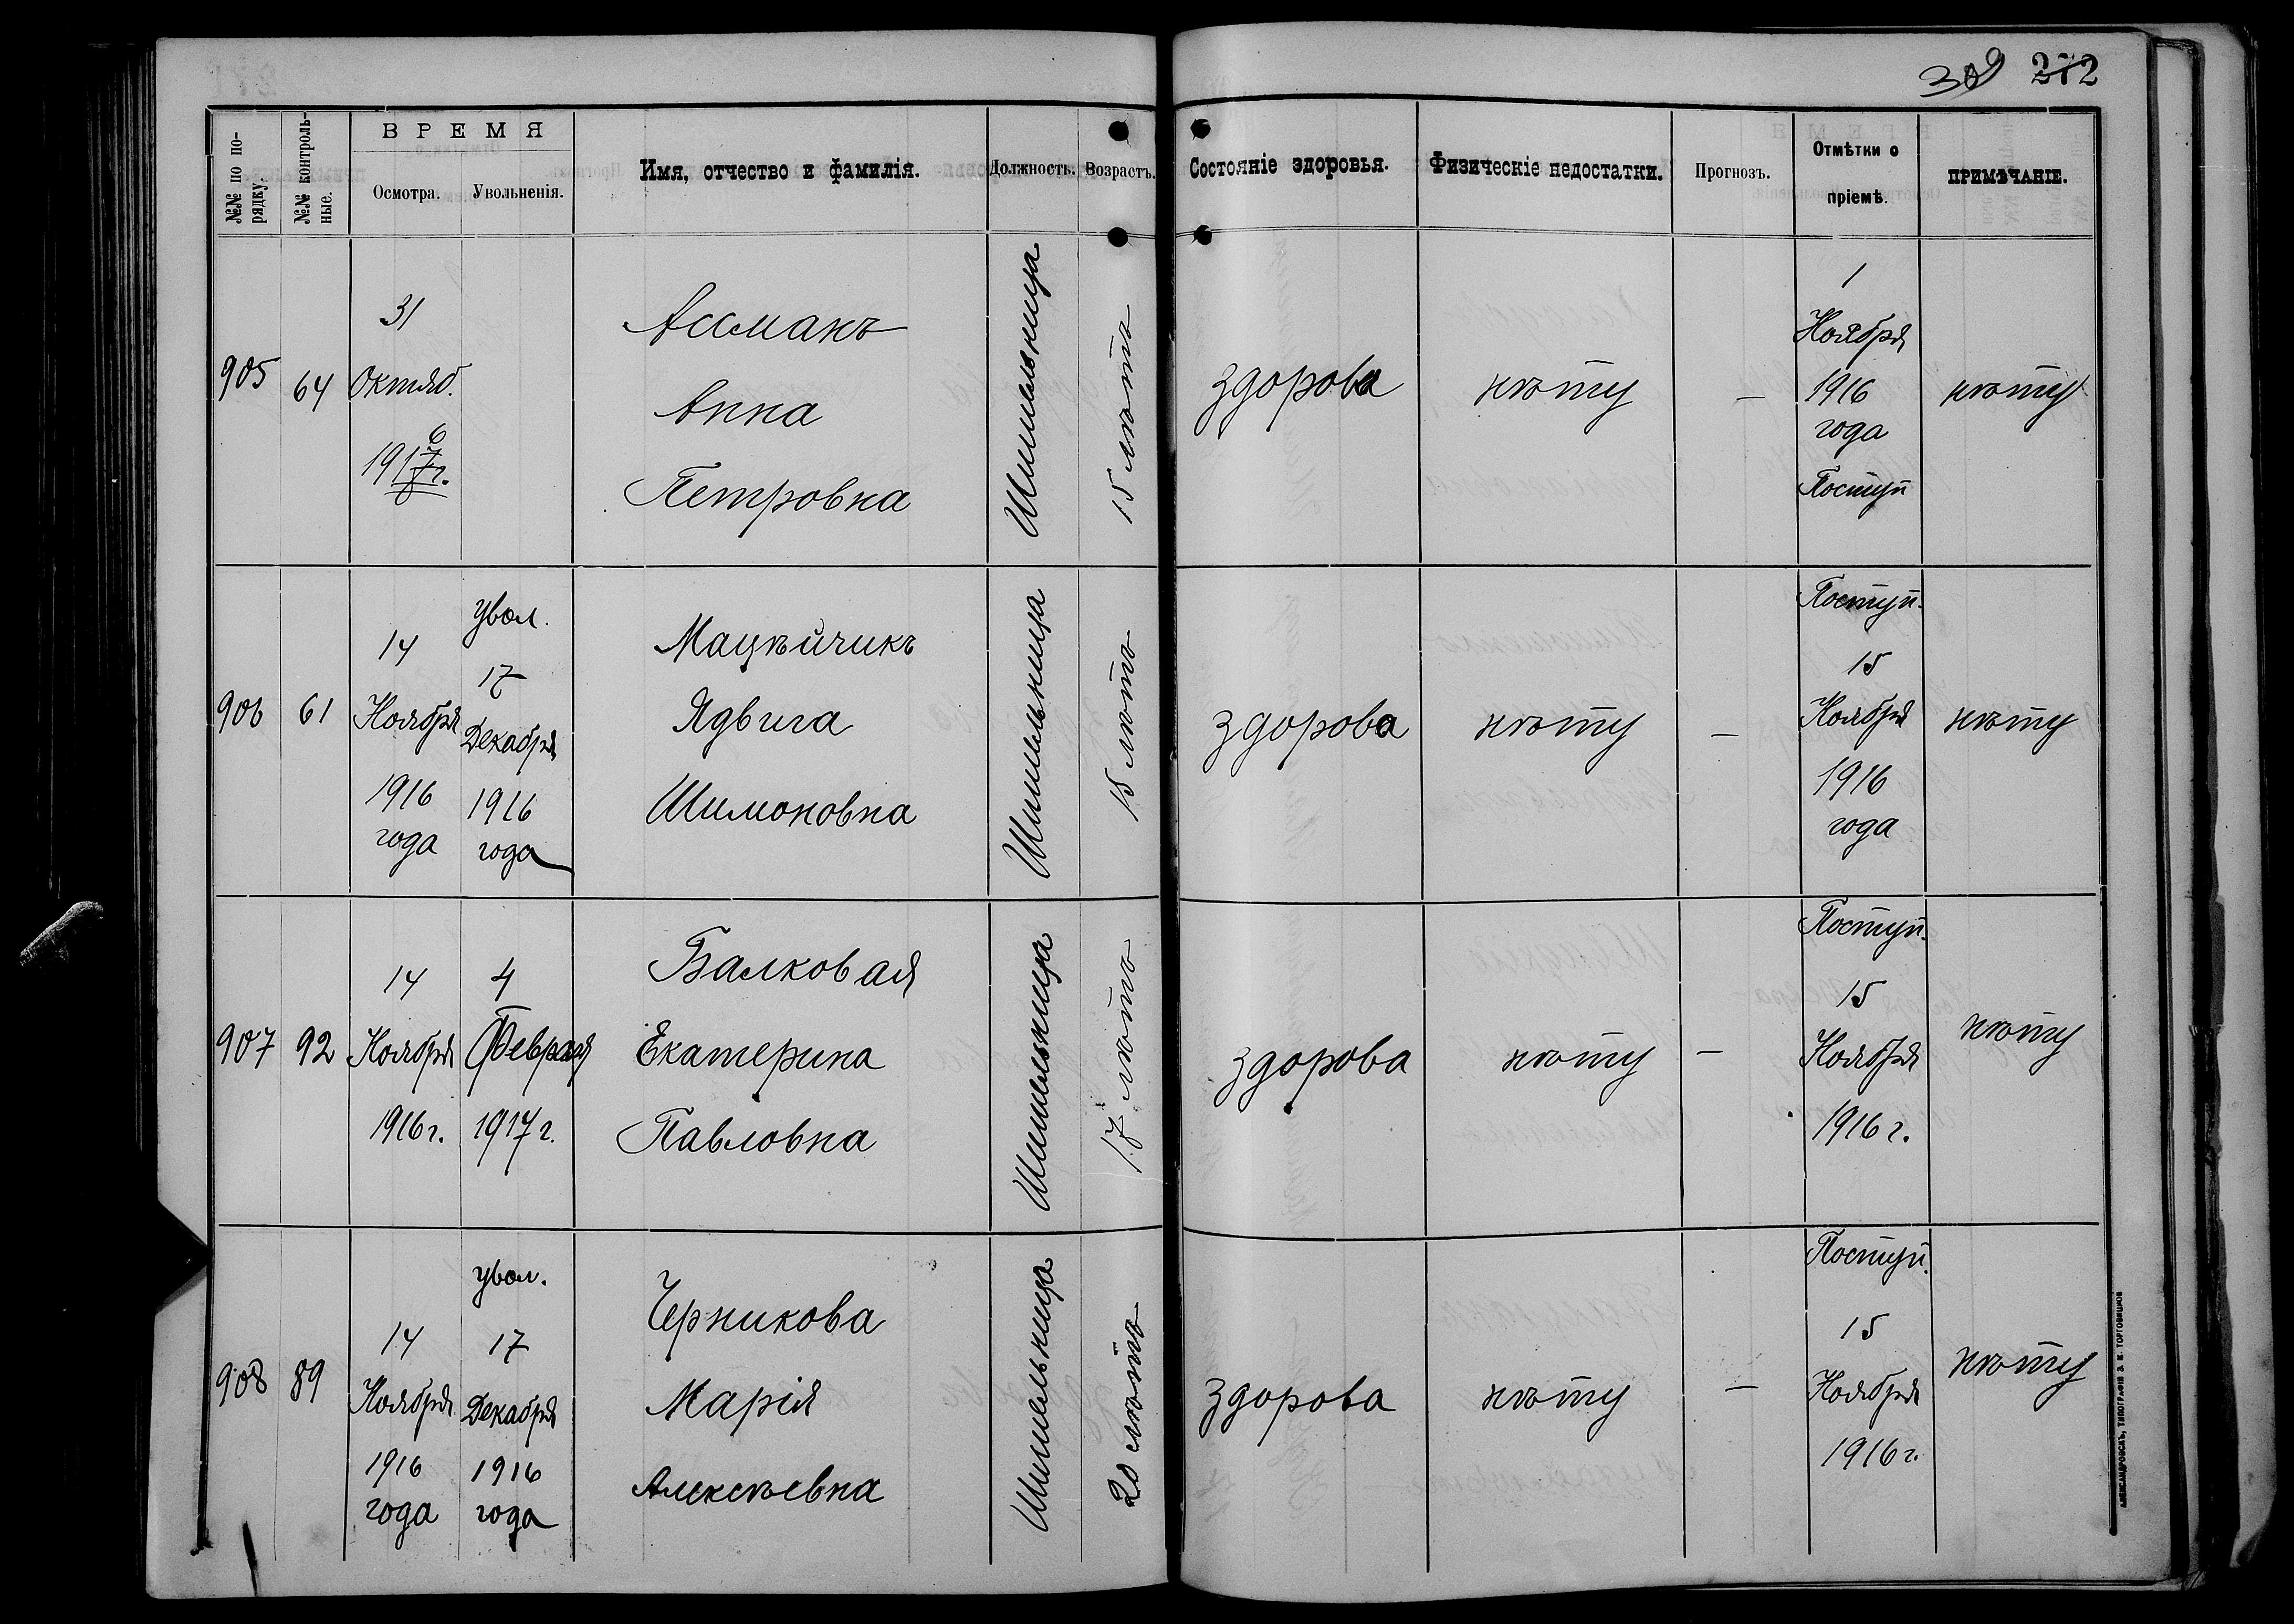 309 272
№№ по по-
рядку.
№№ контроль-
ные.
ВРЕМЯ
Осмотра.
Увольненія.
Имя, отчество и фамилія.
Должность.
Возрастъ.
Состояніе здоровья.
Физическіе недостатки.
Прогнозъ.
Отмѣтки о
пріемѣ.
ПРИМѢЧАНІЕ.
905
64
31
Октяб.
6
1917г.
Ассманъ
Анна
Петровна
Шпильница
15 лѣтъ
здорова
нѣту
—
1
Ноября
1916
года
Поступ
нѣту
906
61
14
Ноября
1916
года
увол.
17
Декабря
1916
года
Мацѣйчикъ
Ядвига
Шимоновна
Шпильница
18 лѣтъ
здорова
нѣту
—
Поступ.
15
Ноября
1916
года
нѣту
907
92
14
Ноября
1916г.
4
Февраля
1917г.
Балковая
Екатерина
Павловна
Шпильница
17 лѣтъ
здорова
нѣту
—
Поступ.
15
Ноября
1916г.
нѣту
908
89
14
Ноября
1916
года
увол.
17
Декабря
1916
года
Черникова
Марія
Алексѣевна
Шпильница
20 лѣтъ
здорова
нѣту
—
Поступ.
15
Ноября
1916г.
нѣту
АЛЕКСАНДРОВСКЪ, ТИПОГРАФІЯ З. И. ТОРГОВИЦКОВ